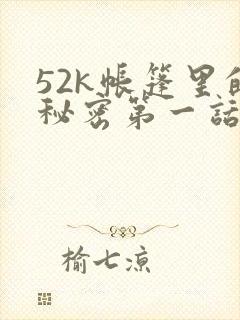 52k帐篷里的
秘密第一話
榆七凉